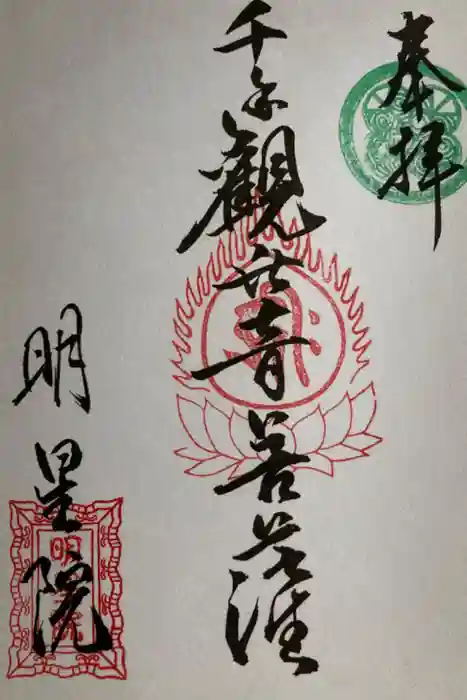 奉拝
千手観世音菩薩
明星院
明星院